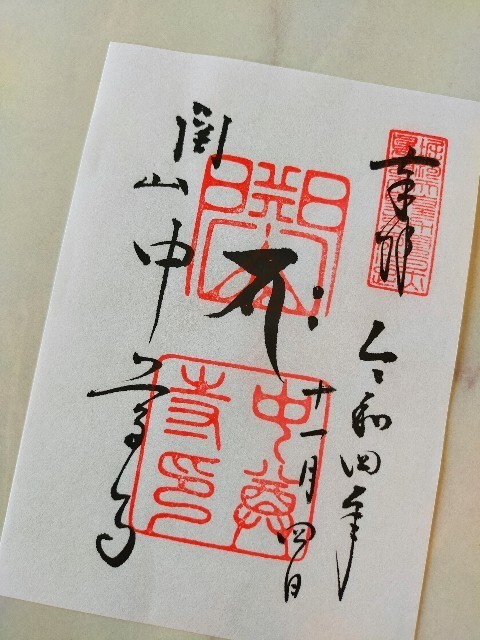 奉拝
令和四年
十一月四日
関山
中尊寺
關山
中尊寺印